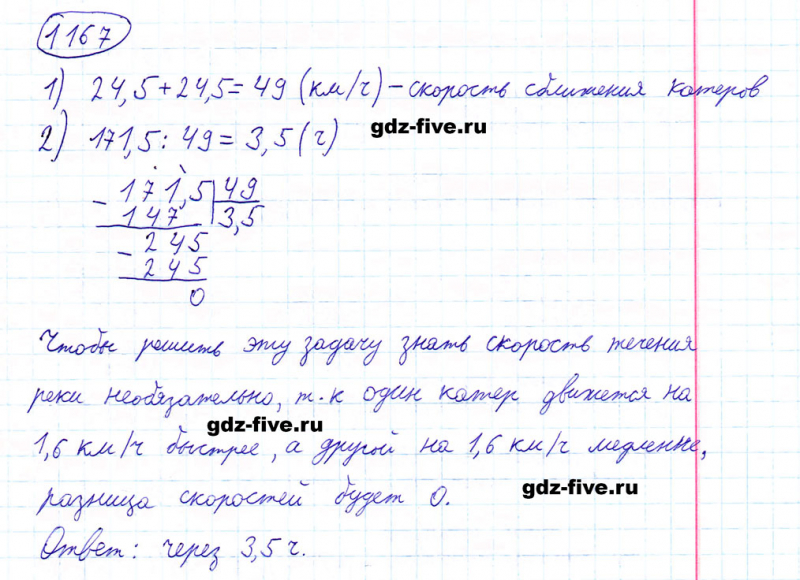 1167
1) 24,5+24,5=49 (км/ч) – скорость сближения катеров
2) 171,5 : 49 = 3,5 (ч)
gdz-five.ru
– 171,5 | 49
147 | 3,5
– 245
245
0
Чтобы решить эту задачу знать скорость течения
реки необязательно, т.к один катер движется на
gdz-five.ru
1,6 км/ч быстрее, а другой на 1,6 км/ч медленне,
разница скоростей будет 0.
gdz-five.ru
Ответ: через 3,5 ч.